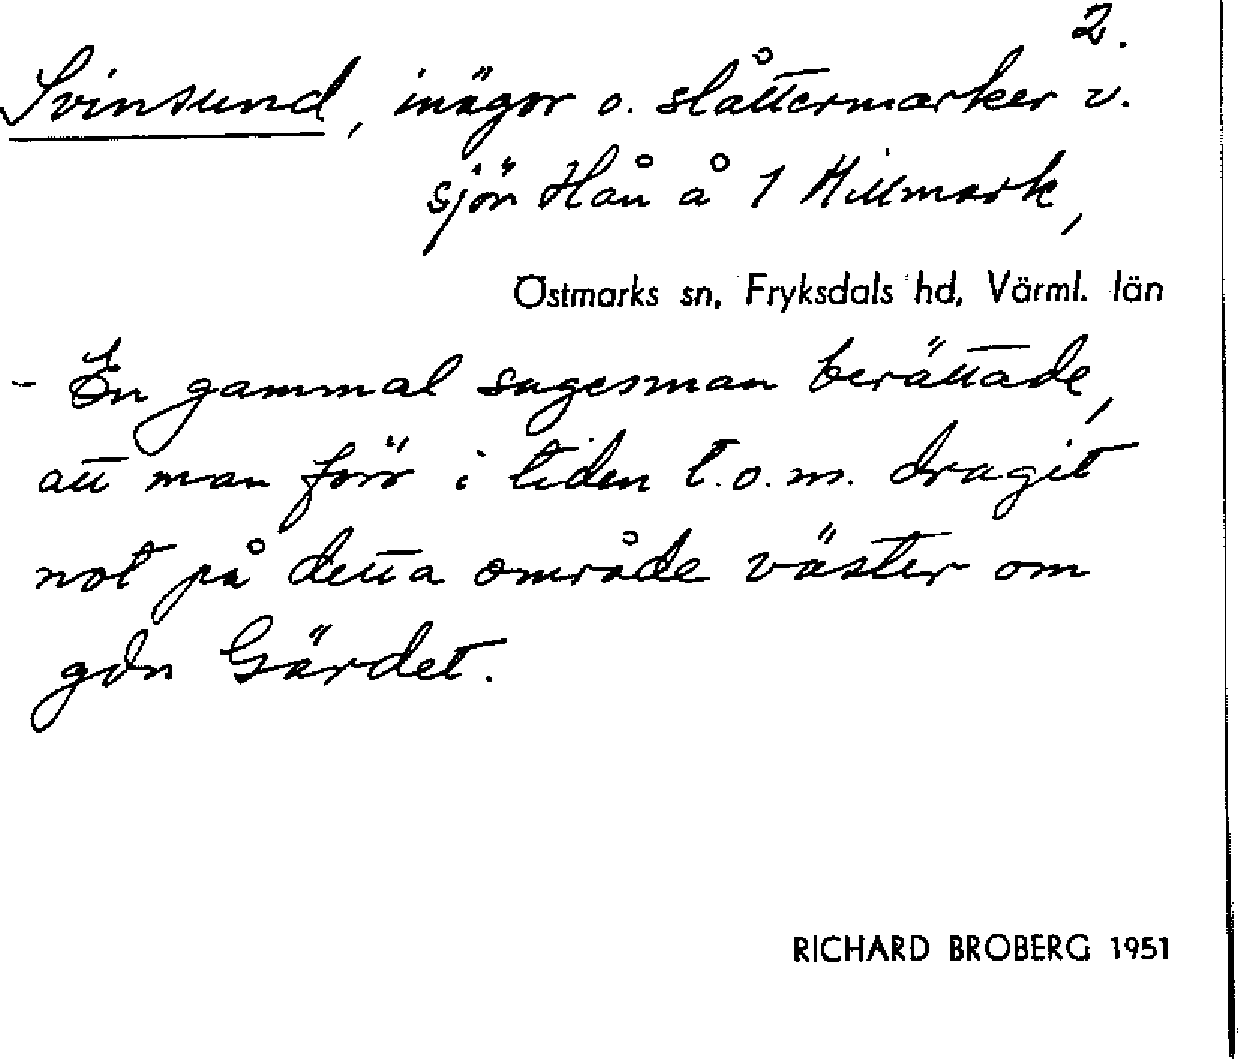 2.
Svinsund, inägor o. slåttermarker v.
sjön Hån å 1 Hillmark,
Östmarks sn, Fryksdals hd, Värml. län
- En gammal sagesman berättade,
att man förr i tiden t.o.m. dragit
not på detta område väster om
gdn Gärdet.
RICHARD BROBERG 1951